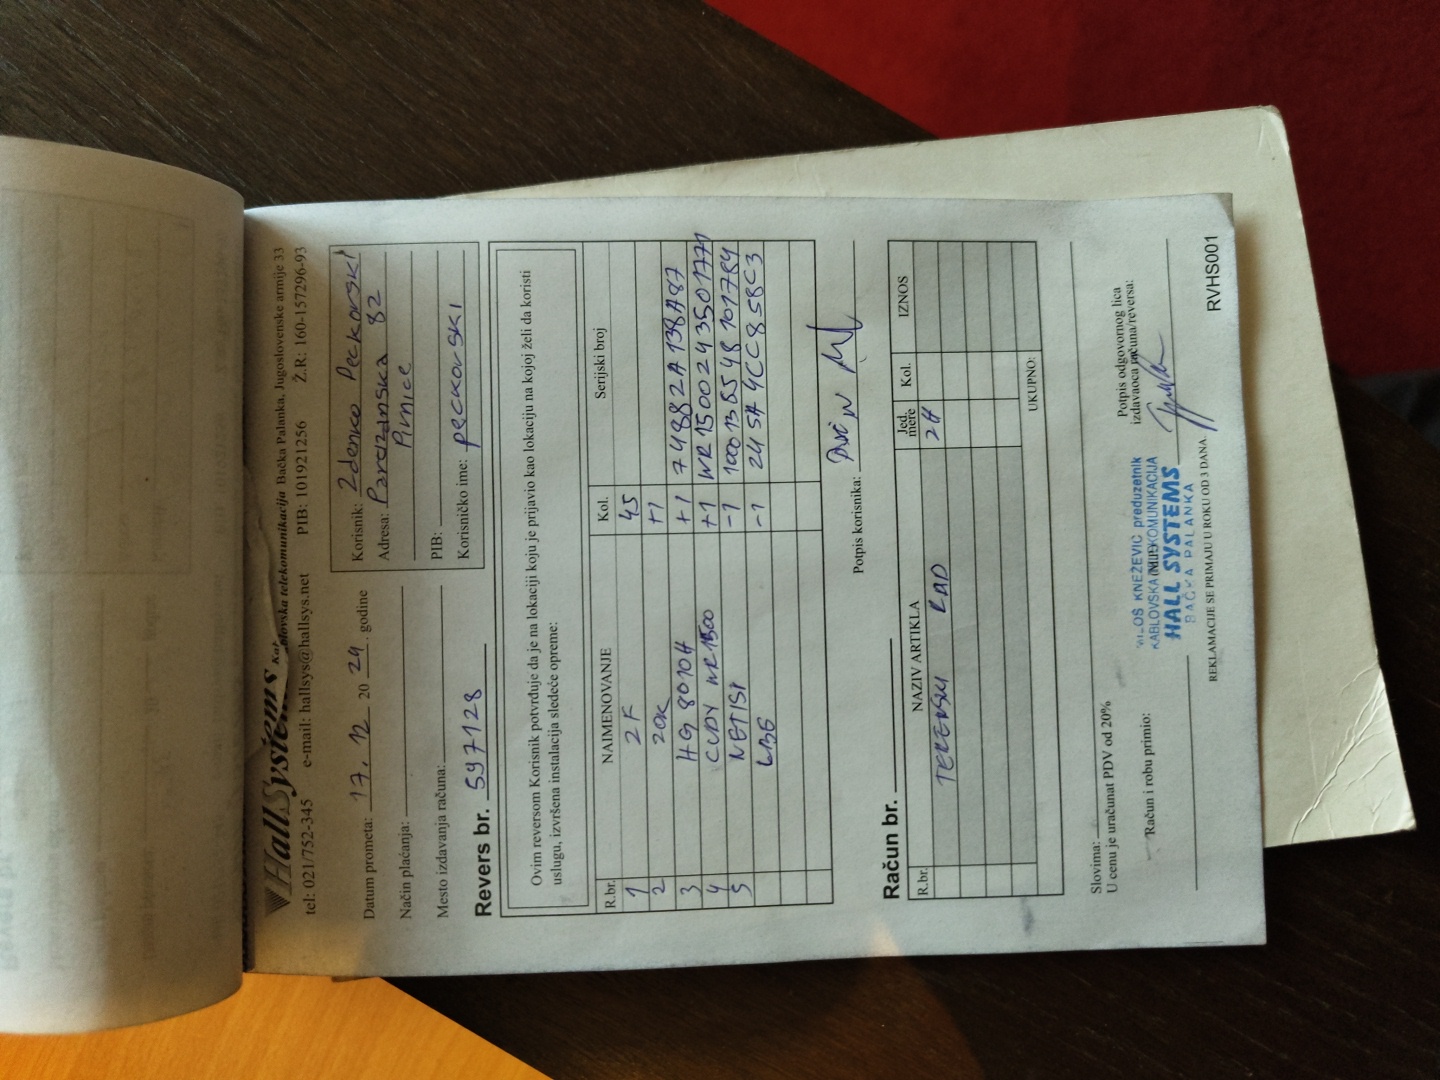 HallSystems Kablovska telekomunikacija Bačka Palanka, Jugoslovenske armije 33
tel: 021/752-345 e-mail: hallsys@hallsys.net PIB: 101921256 Ž.R: 160-157296-93
Datum prometa: 17. 12 2024. godine
Način plaćanja:
Mesto izdavanja računa:
Korisnik: Zdenko Peckovski
Adresa:
82
Pivnice
PIB:
Korisničko ime: peckovski
Revers br. 597128
Ovim reversom Korisnik potvrđuje da je na lokaciji koju je prijavio kao lokaciju na kojoj želi da koristi
uslugu, izvršena instalacija sledeće opreme:
R.br. NAIMENOVANJE Kol. Serijski broj
1 2F 45
2 ZOK +1
3 HG 8010H +1 74882A138A87
4 CUDY WR1500 +1 WR1500243501771
5 NETIS1 -1 1000135548101784
-1 245A4CC858C3
Potpis korisnika:
Račun br.
R.br. NAZIV ARTIKLA Jed. mere Kol. IZNOS
TERENSKI RAD 2H
UKUPNO:
Slovima:
U cenu je uračunat PDV od 20%
Račun i robu primio:
MILOŠ KNEŽEVIĆ preduzetnik
KABLOVSKA TELEKOMUNIKACIJA
HALL SYSTEMS
BAČKA PALANKA
Potpis odgovornog lica
izdavaoca računa/reversa:
REKLAMACIJE SE PRIMAJU U ROKU OD 3 DANA.
RVHS001